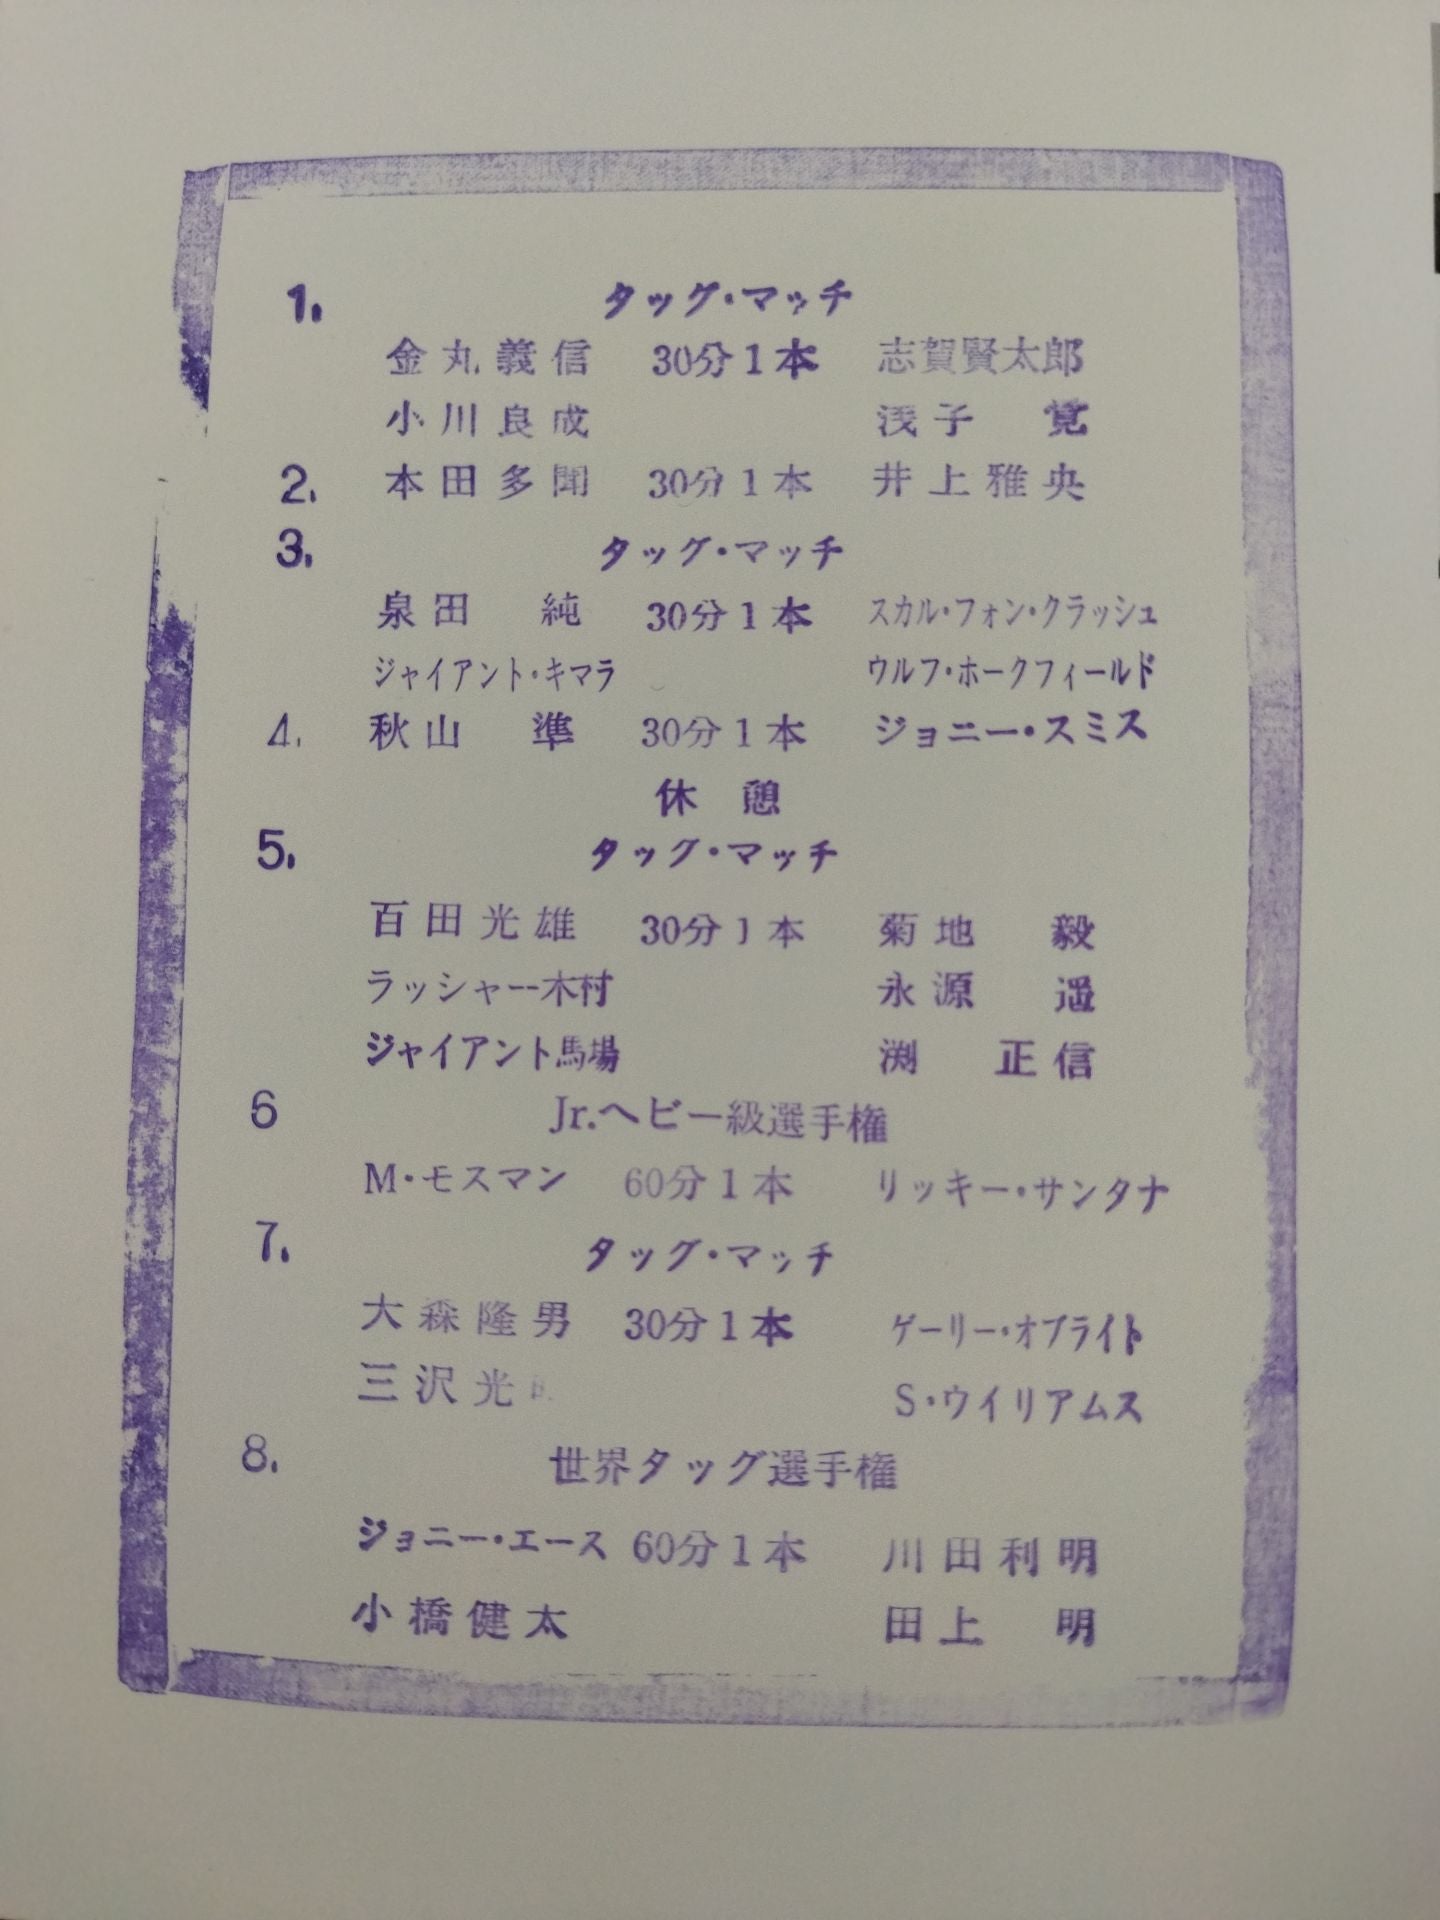 1. タッグ・マッチ
金丸義信 30分1本 志賀賢太郎
小川良成 浅子 覚
2. 本田多聞 30分1本 井上雅央
3. タッグ・マッチ
泉田 純 30分1本 スカル・フォン・クラッシュ
ジャイアント・キマラ ウルフ・ホークフィールド
4. 秋山 準 30分1本 ジョニー・スミス
休 憩
5. タッグ・マッチ
百田光雄 30分1本 菊地 毅
ラッシャー木村 永源 遥
ジャイアント馬場 渕 正信
6 Jr.ヘビー級選手権
M・モスマン 60分1本 リッキー・サンタナ
7. タッグ・マッチ
大森隆男 30分1本 ゲーリー・オブライト
三沢光 S・ウイリアムス
8. 世界タッグ選手権
ジョニー・エース 60分1本 川田利明
小橋健太 田上 明